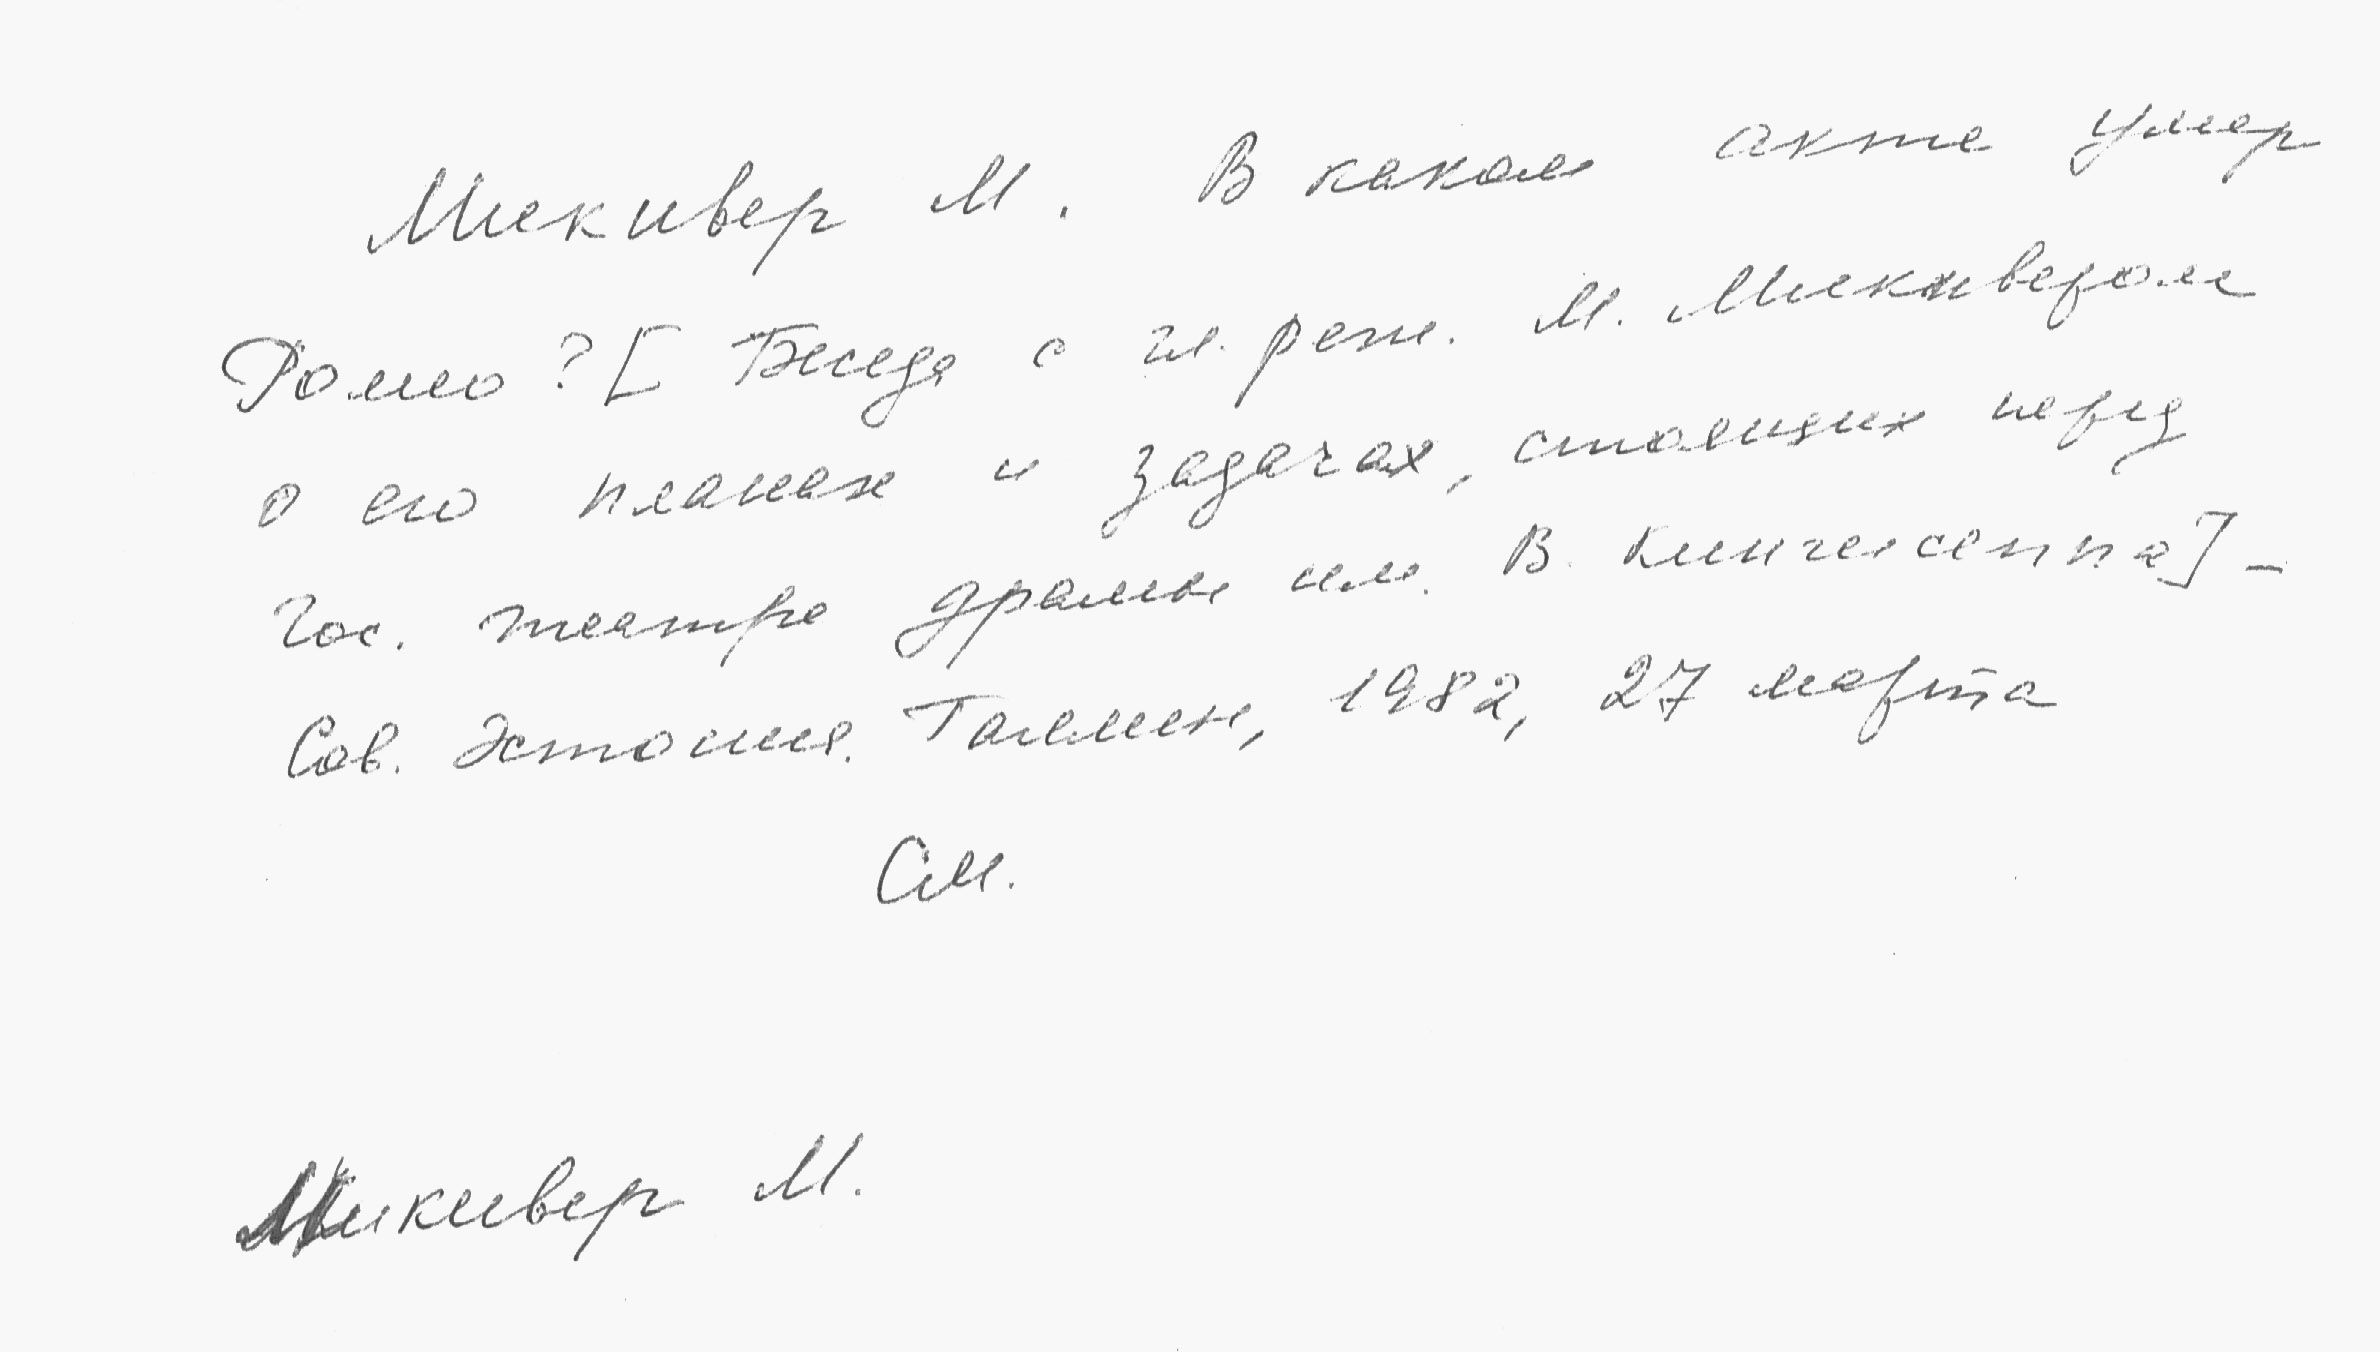 Микивер М. В каком акте умер
Ромео? [Беседа с гл. реж. М. Микивером
о его планах и задачах, стоящих перед
Гос. театре драмы им. В. Кингисеппа] -
Сов. Эстония. Таллин, 1982, 27 марта
См.
Микивер М.